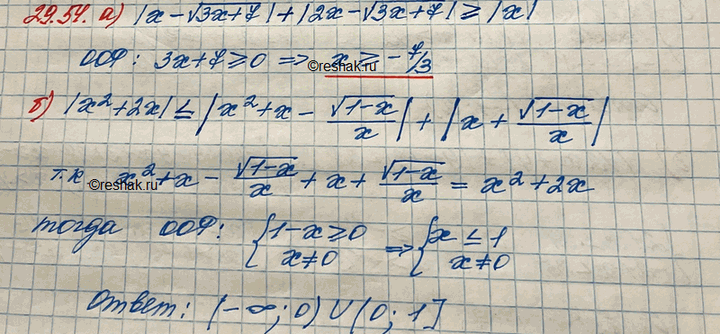 29.54. а) |x - √3x+7| + |2x - √3x+7| ≥ |x|
ООФ: 3x+7 ≥ 0 => x ≥ -7/3
©reshak.ru
б) |x²+2x| ≤ |x²+x - √1-x/x| + |x + √1-x/x|
т.к x²+x - √1-x/x + x + √1-x/x = x²+2x
©reshak.ru
тогда ООФ: { 1-x ≥ 0 => { x ≤ 1
x≠0 x≠0
Ответ: (-∞; 0) ∪ (0; 1]